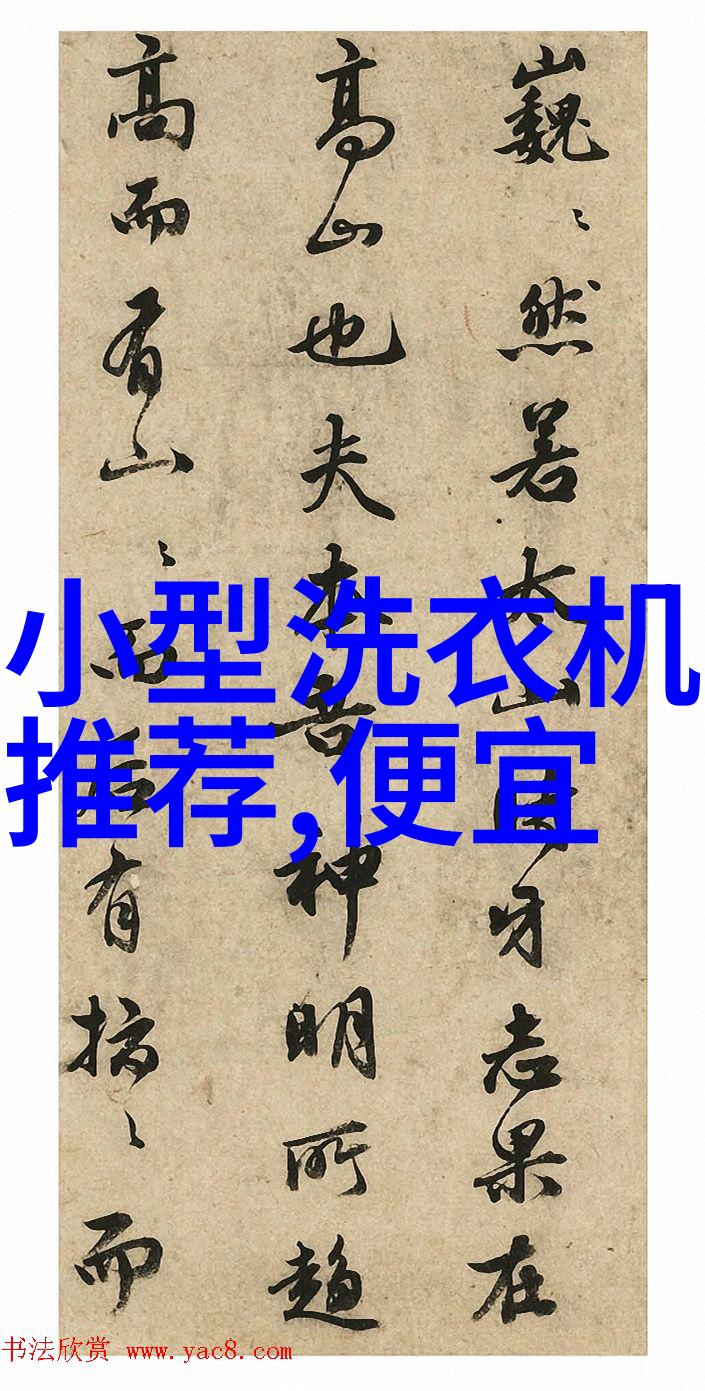 巍〻然若太山牙志果在
高山也夫吾神明所趨
高而有山〻而后有〻而
小型洗衣机
推荐,便宜
书法欣赏 www.yac8.com